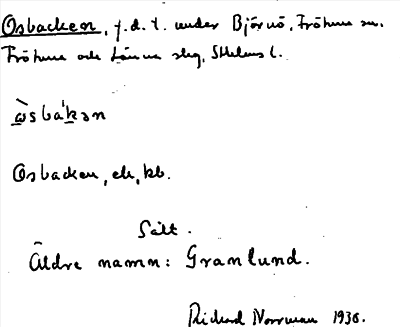 Osbacken, f.d. t. under Björnö, Frötuna sn.
Frötuna och Länna skg, Sthlms l.
Osbacken, ek, kb.
Sält.
Äldre namn: Granlund.
Richard Norrman 1936.